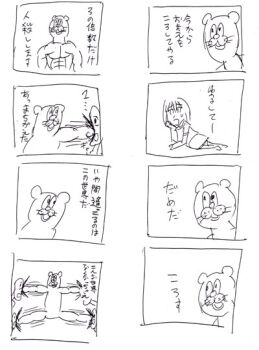 今から
おまえを
ころしてやる
ゆるしてー
だめだ
ころす
3の倍数だけ
人殺しします
1…
あっまちがえた
いや間違ってるのは
この世界だ
こんな世界